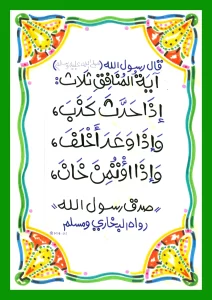 قال رسول الله (صلى الله عليه وسلم)
آية المُنَافِقِ ثَلاث:
إِذَا حَدَّثَ كَذَبَ،
وَإِذَا وَعَدَ أَخْلَفَ،
وَإِذَا اؤْتُمِنَ خَانَ،
"صدق رسول الله"
رواه البخاري ومسلم